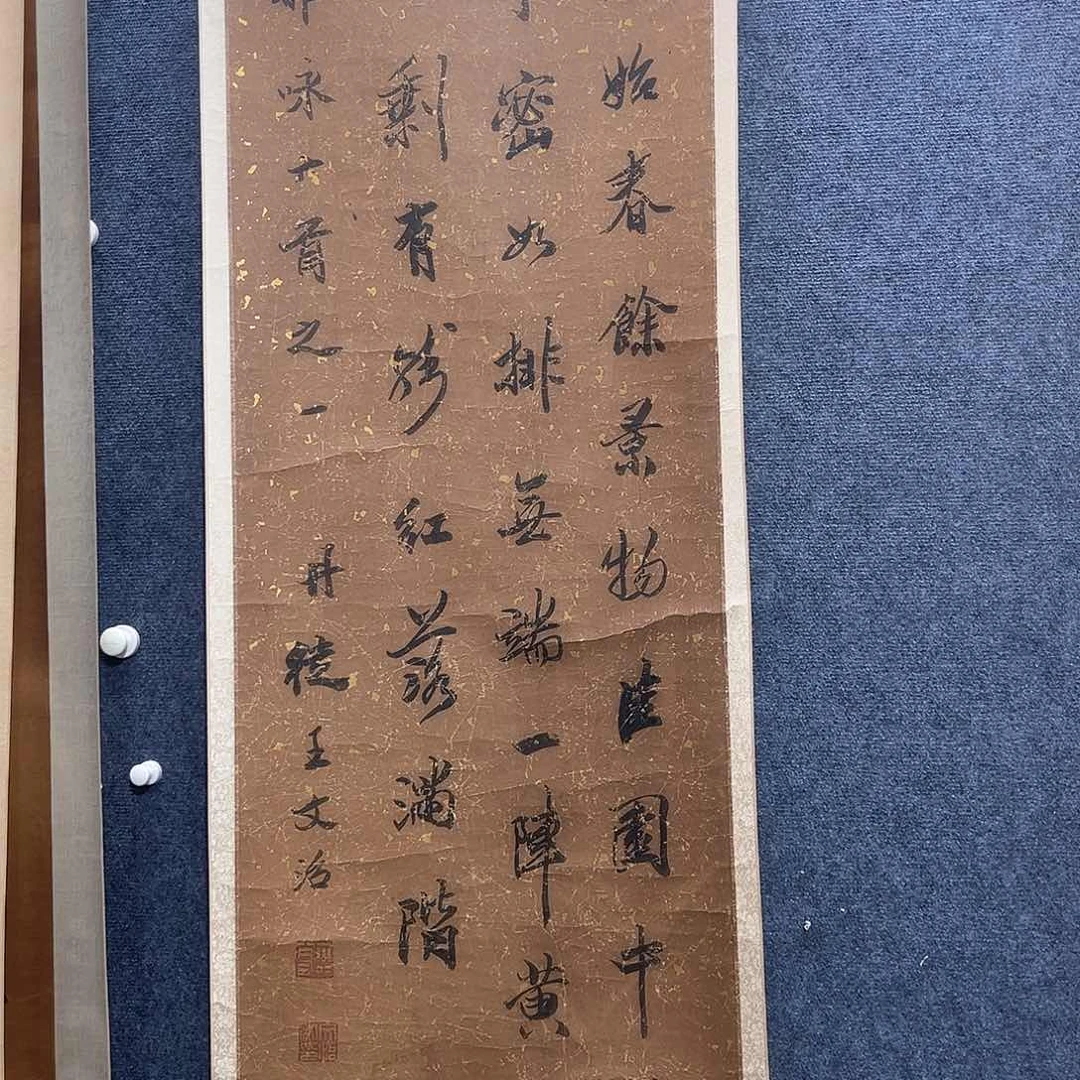 始春餘景物佳園中
密如排無端一陣黃
剩有殘紅落滿階
咏十首之一 丹徒王文治